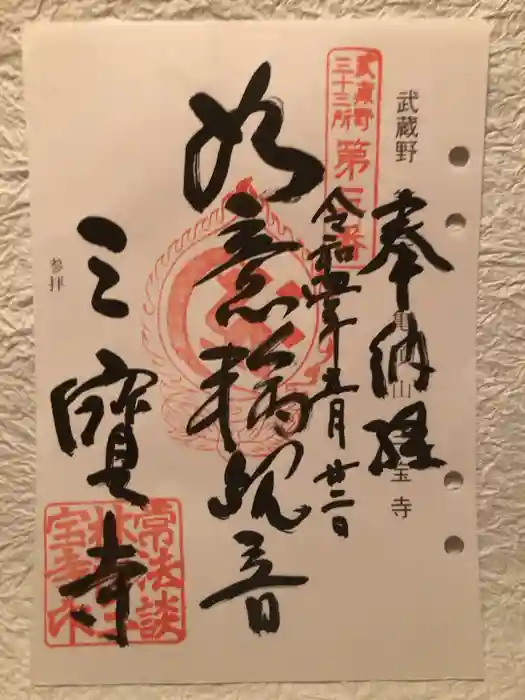 武蔵野
山
宝寺
奉納経
武蔵野
三十三所
第三番
令和四年五月廿二日
如意輪観音
三寳寺
参拝
常法談
林三
宝寺印